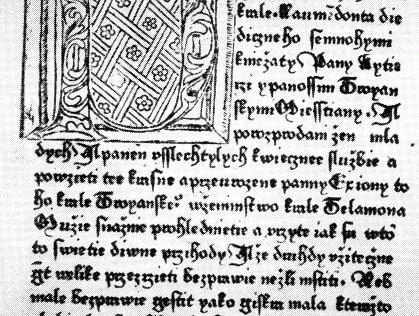 krale · Laumedonta die
diczneho semnohymi
kniežaty Pany Rytie
rzi ypanossim Troyan
skymi Miesstiany · A
powzprodani žen mla
dych A panen vsslechtylych kwiecznee službie a
powzieti tee krasne aprzeurozene panny Exiony to
ho krale Troyanskeº wzemiňstwo krale Telamona
Mužie snažne prohledmietie a vzyte jak su wto
to swietie diwne przihody A že druhdy vžitečne
gt welike przezrieti bezprawie nežli mstiti · Neb
male bezprawie gestit yako giskra mala kteražto